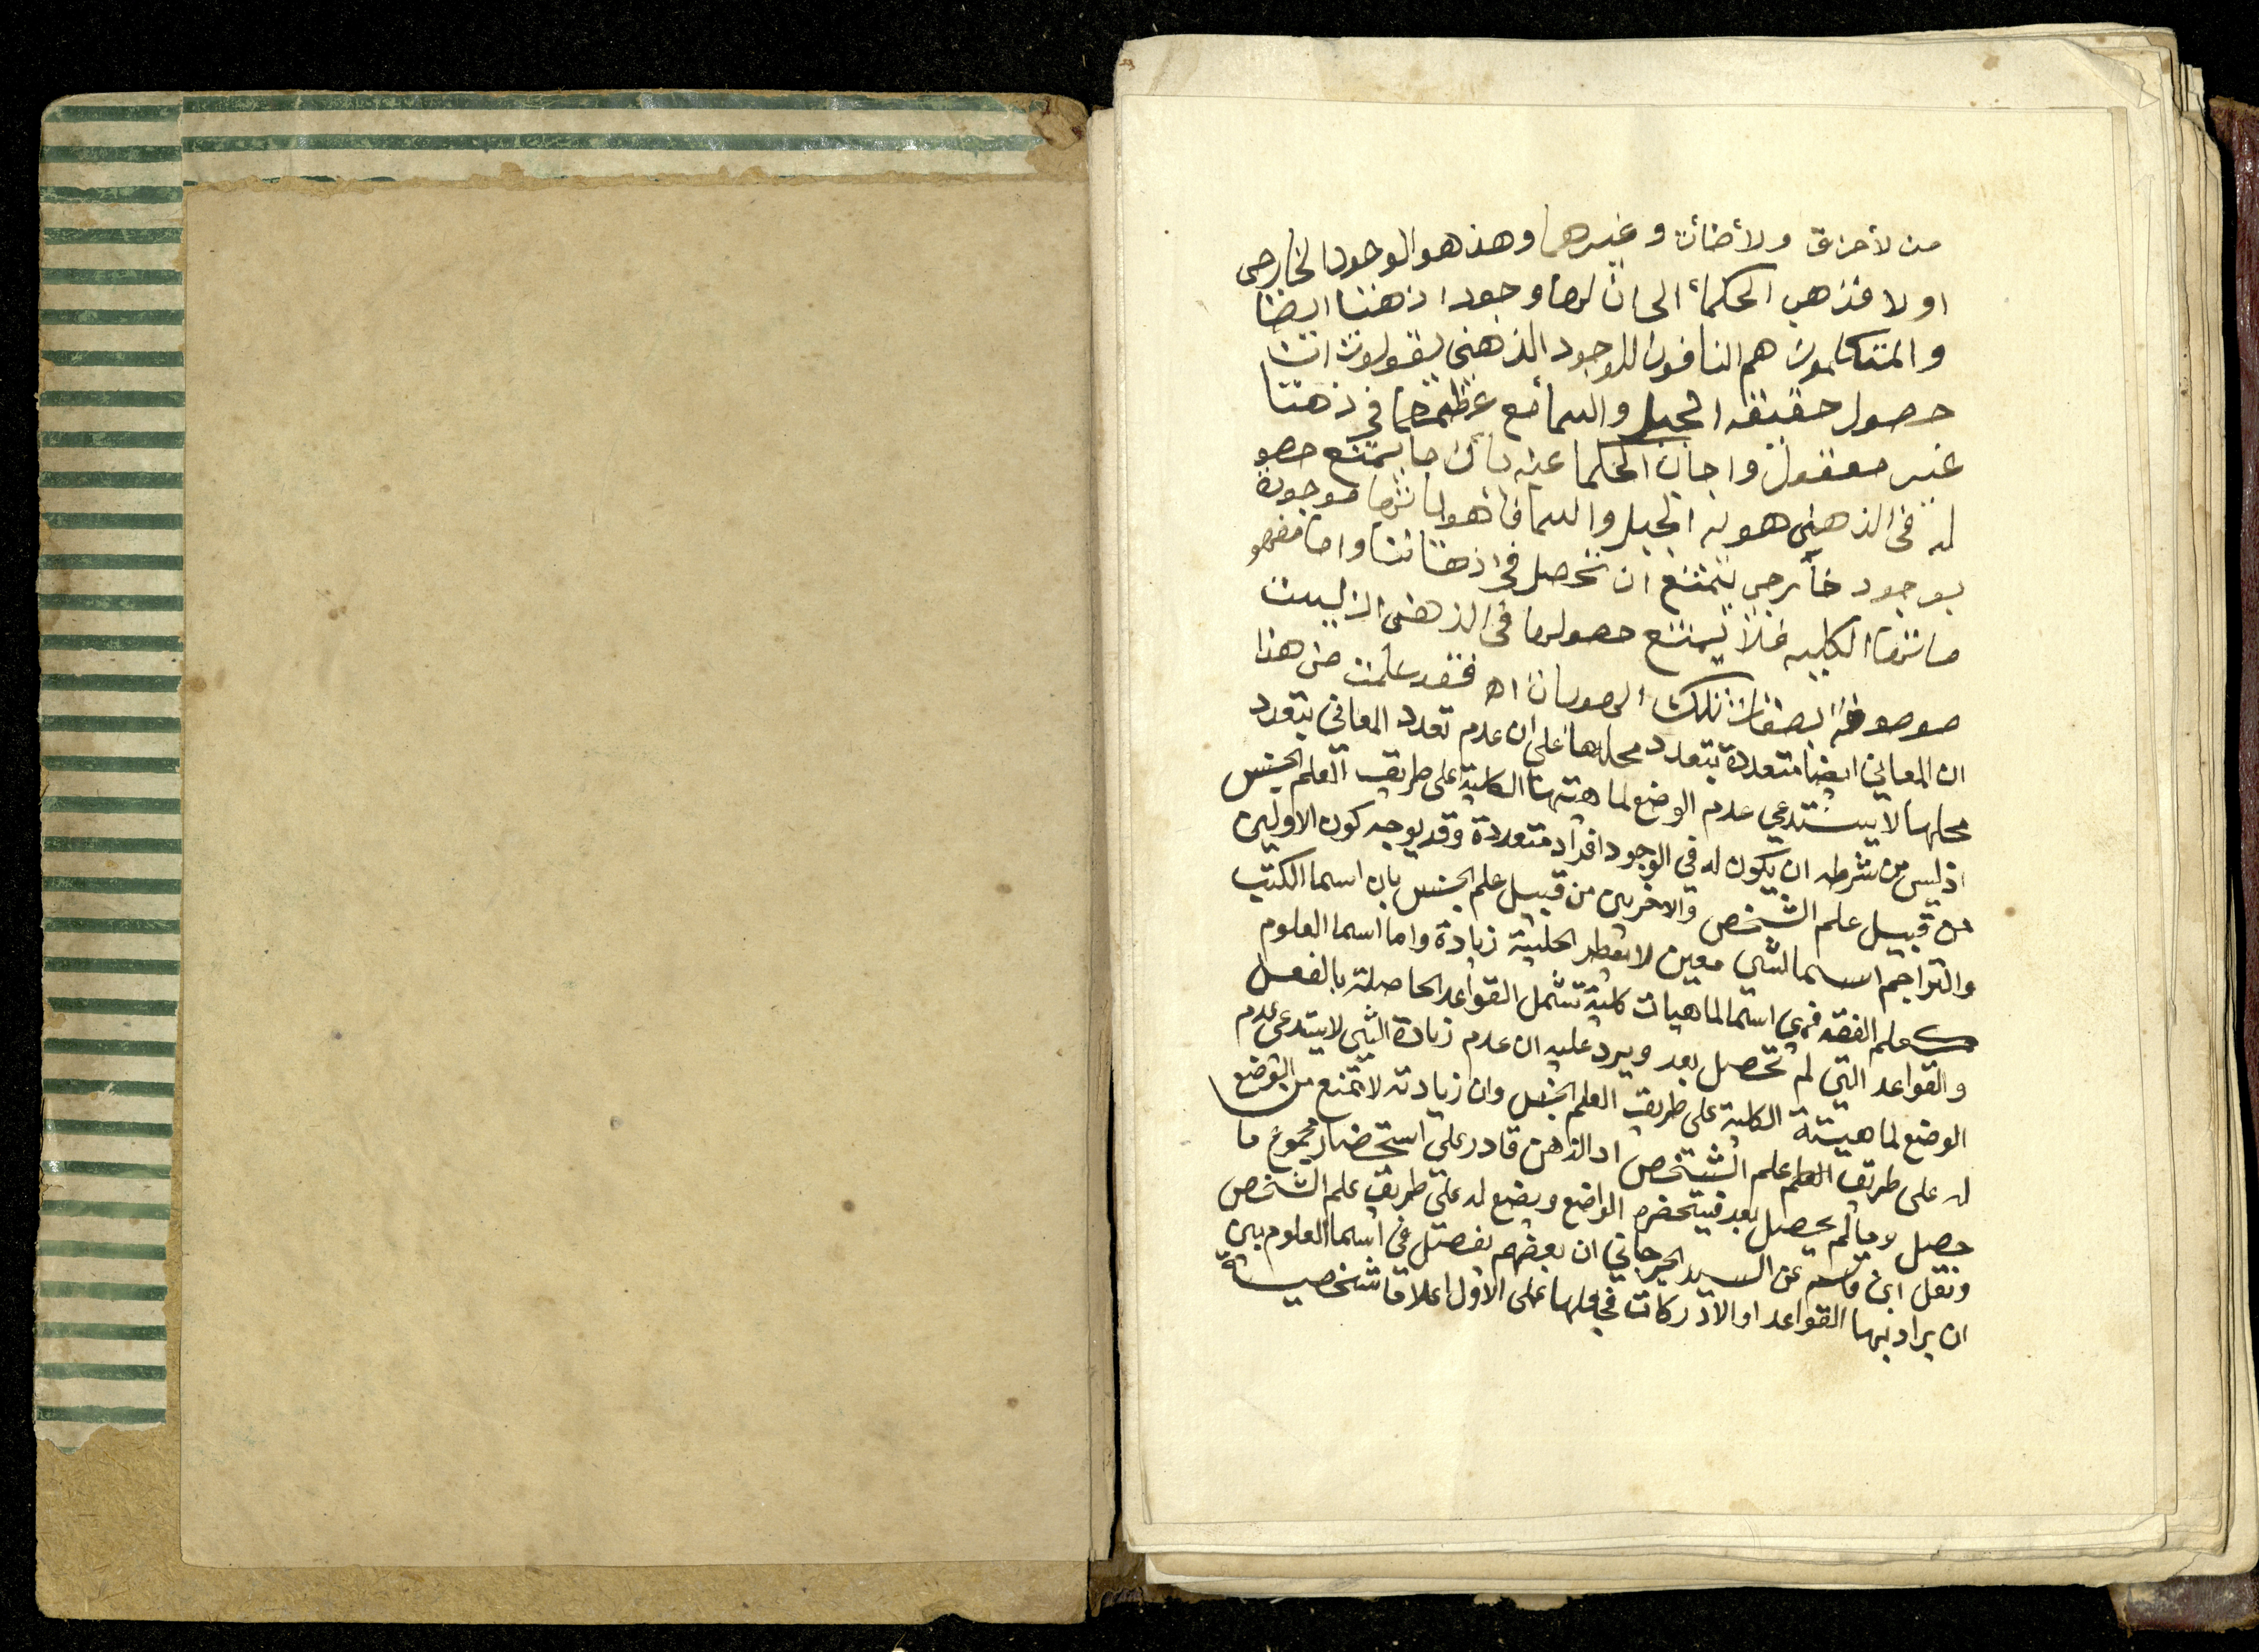 من لأحراق ولأضأت وغيرهما وهذ هو الوجود الخارجى
او لا فذهب الحكمأ الى ان لها وجودا ذهنيا ايضا
والمتكلمون هم النافون للوجود الذهنى يقولون ان
حصول حقيقه الجبل والسمأ مع عظمهما فى ذهننا
غير معقول واجاب الحكما عنه بأن ما يمتنع حصو
له فى الذهنى هويه الجبل والسما فأ هوياتها موجودة
بوجود خأرجى يمتنع ان تحصل فى اذهاننا واما مفهو
ماتها الكليه فلا يمتنع حصولها فى الذهنى اذ ليست
موصوفة بصفات تلك الهويات اه فقد علمت من هذا
ان المعانى ايضا متعددة بتعدد محلها على ان عدم تعدد المعانى بتعدد
محلها لا يستدعي عدم الوضع لماهيتها الكلية على طريق العلم الجنس
اذ ليس من شرطه ان يكون له في الوجود افراد متعددة وقد يوجه كون الاولين
من قبيل علم الشخص والاخرين من قبيل علم الجنس بان اسما الكتب
والتراجم اسما لشي معين لا زيادة واما اسما العلوم
كعلم الفقه فهي اسما لماهيات كلية تشمل القواعد الحاصلة بالفعل
والقواعد التي لم تحصل بعد ويرد عليه ان عدم زيادة الشي لا يستدعى عدم
الوضع لماهيته الكلية على طريق العلم الجنس وان زيادته لا تمنع من الوضع
له على طريق العلم علم الشخص اذ الذهن قادر على استحضار مجموع ما
حصل وما لم يحصل بعد فيستحضره الواضع ويضع له على طريق علم الشخص
ونقل ابن قاسم عن السيد الجرجاني ان بعضهم يفصل في اسما العلوم بين
ان يراد بها القواعد او الادركات فجعلها على الاول اعلاما شخصية